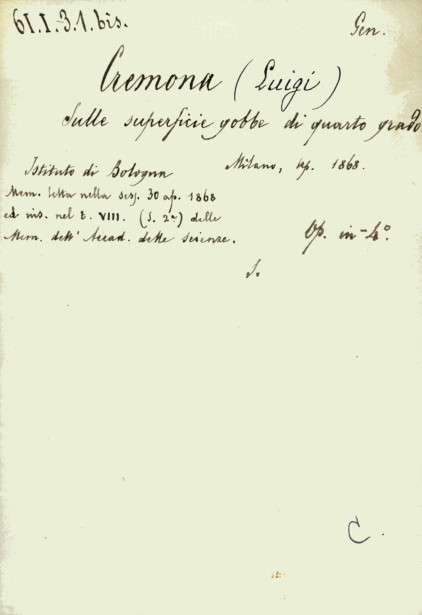 61.I.3.1.bis.
Gen.
Cremona (Luigi)
Sulle superficie gobbe di quarto grado
Istituto di Bologna
Milano, ap. 1868.
Mem. letta nella sess. 30 ap. 1868
ed ins. nel t. VIII. (S. 2ª) delle
Mem. dell' Accad. delle scienze.
Op. in-4.º
S.
C.